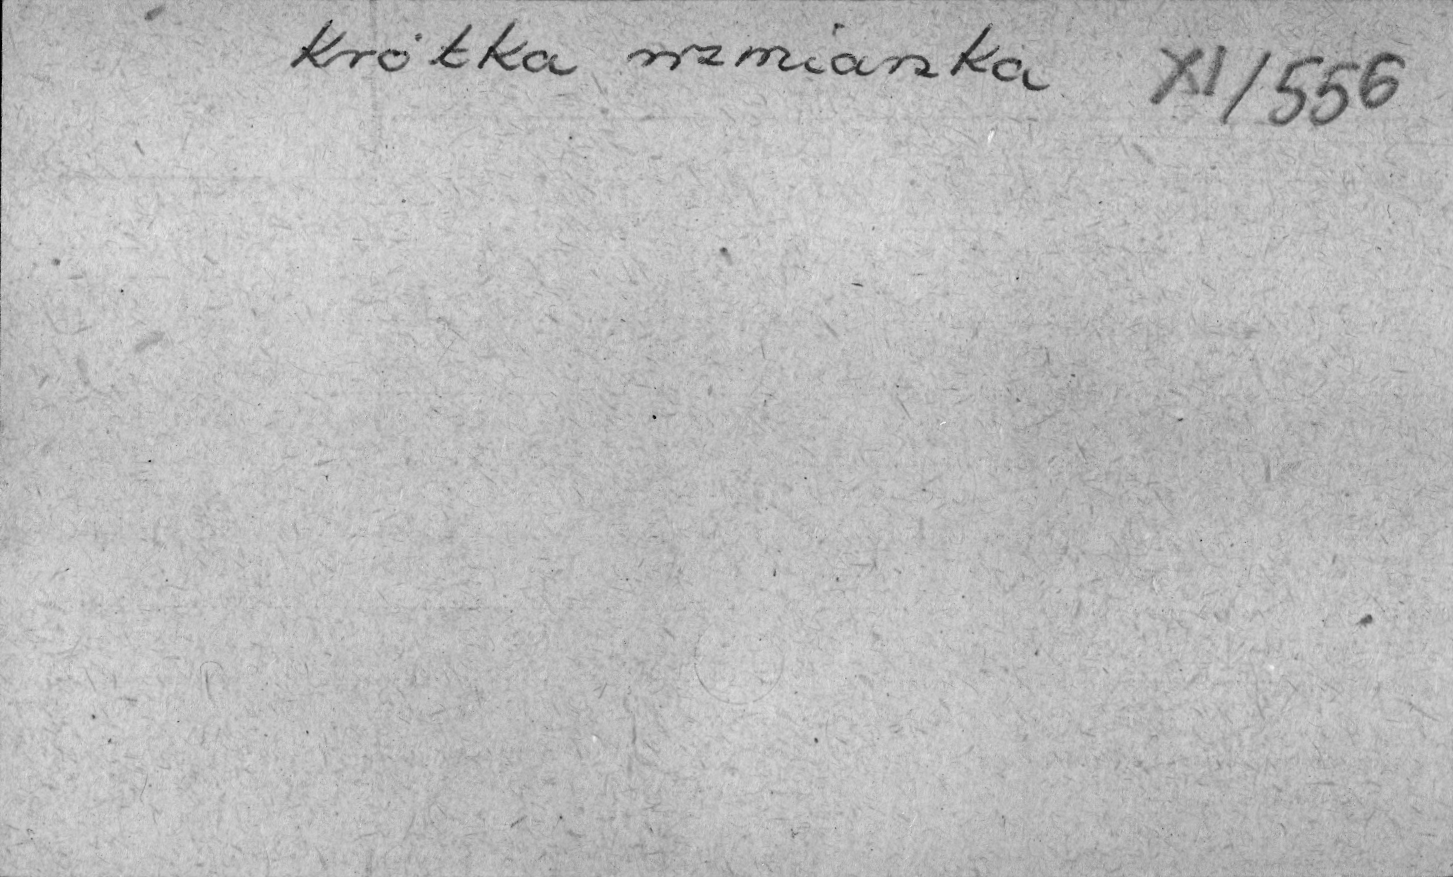 Krótka wzmianka XI/556